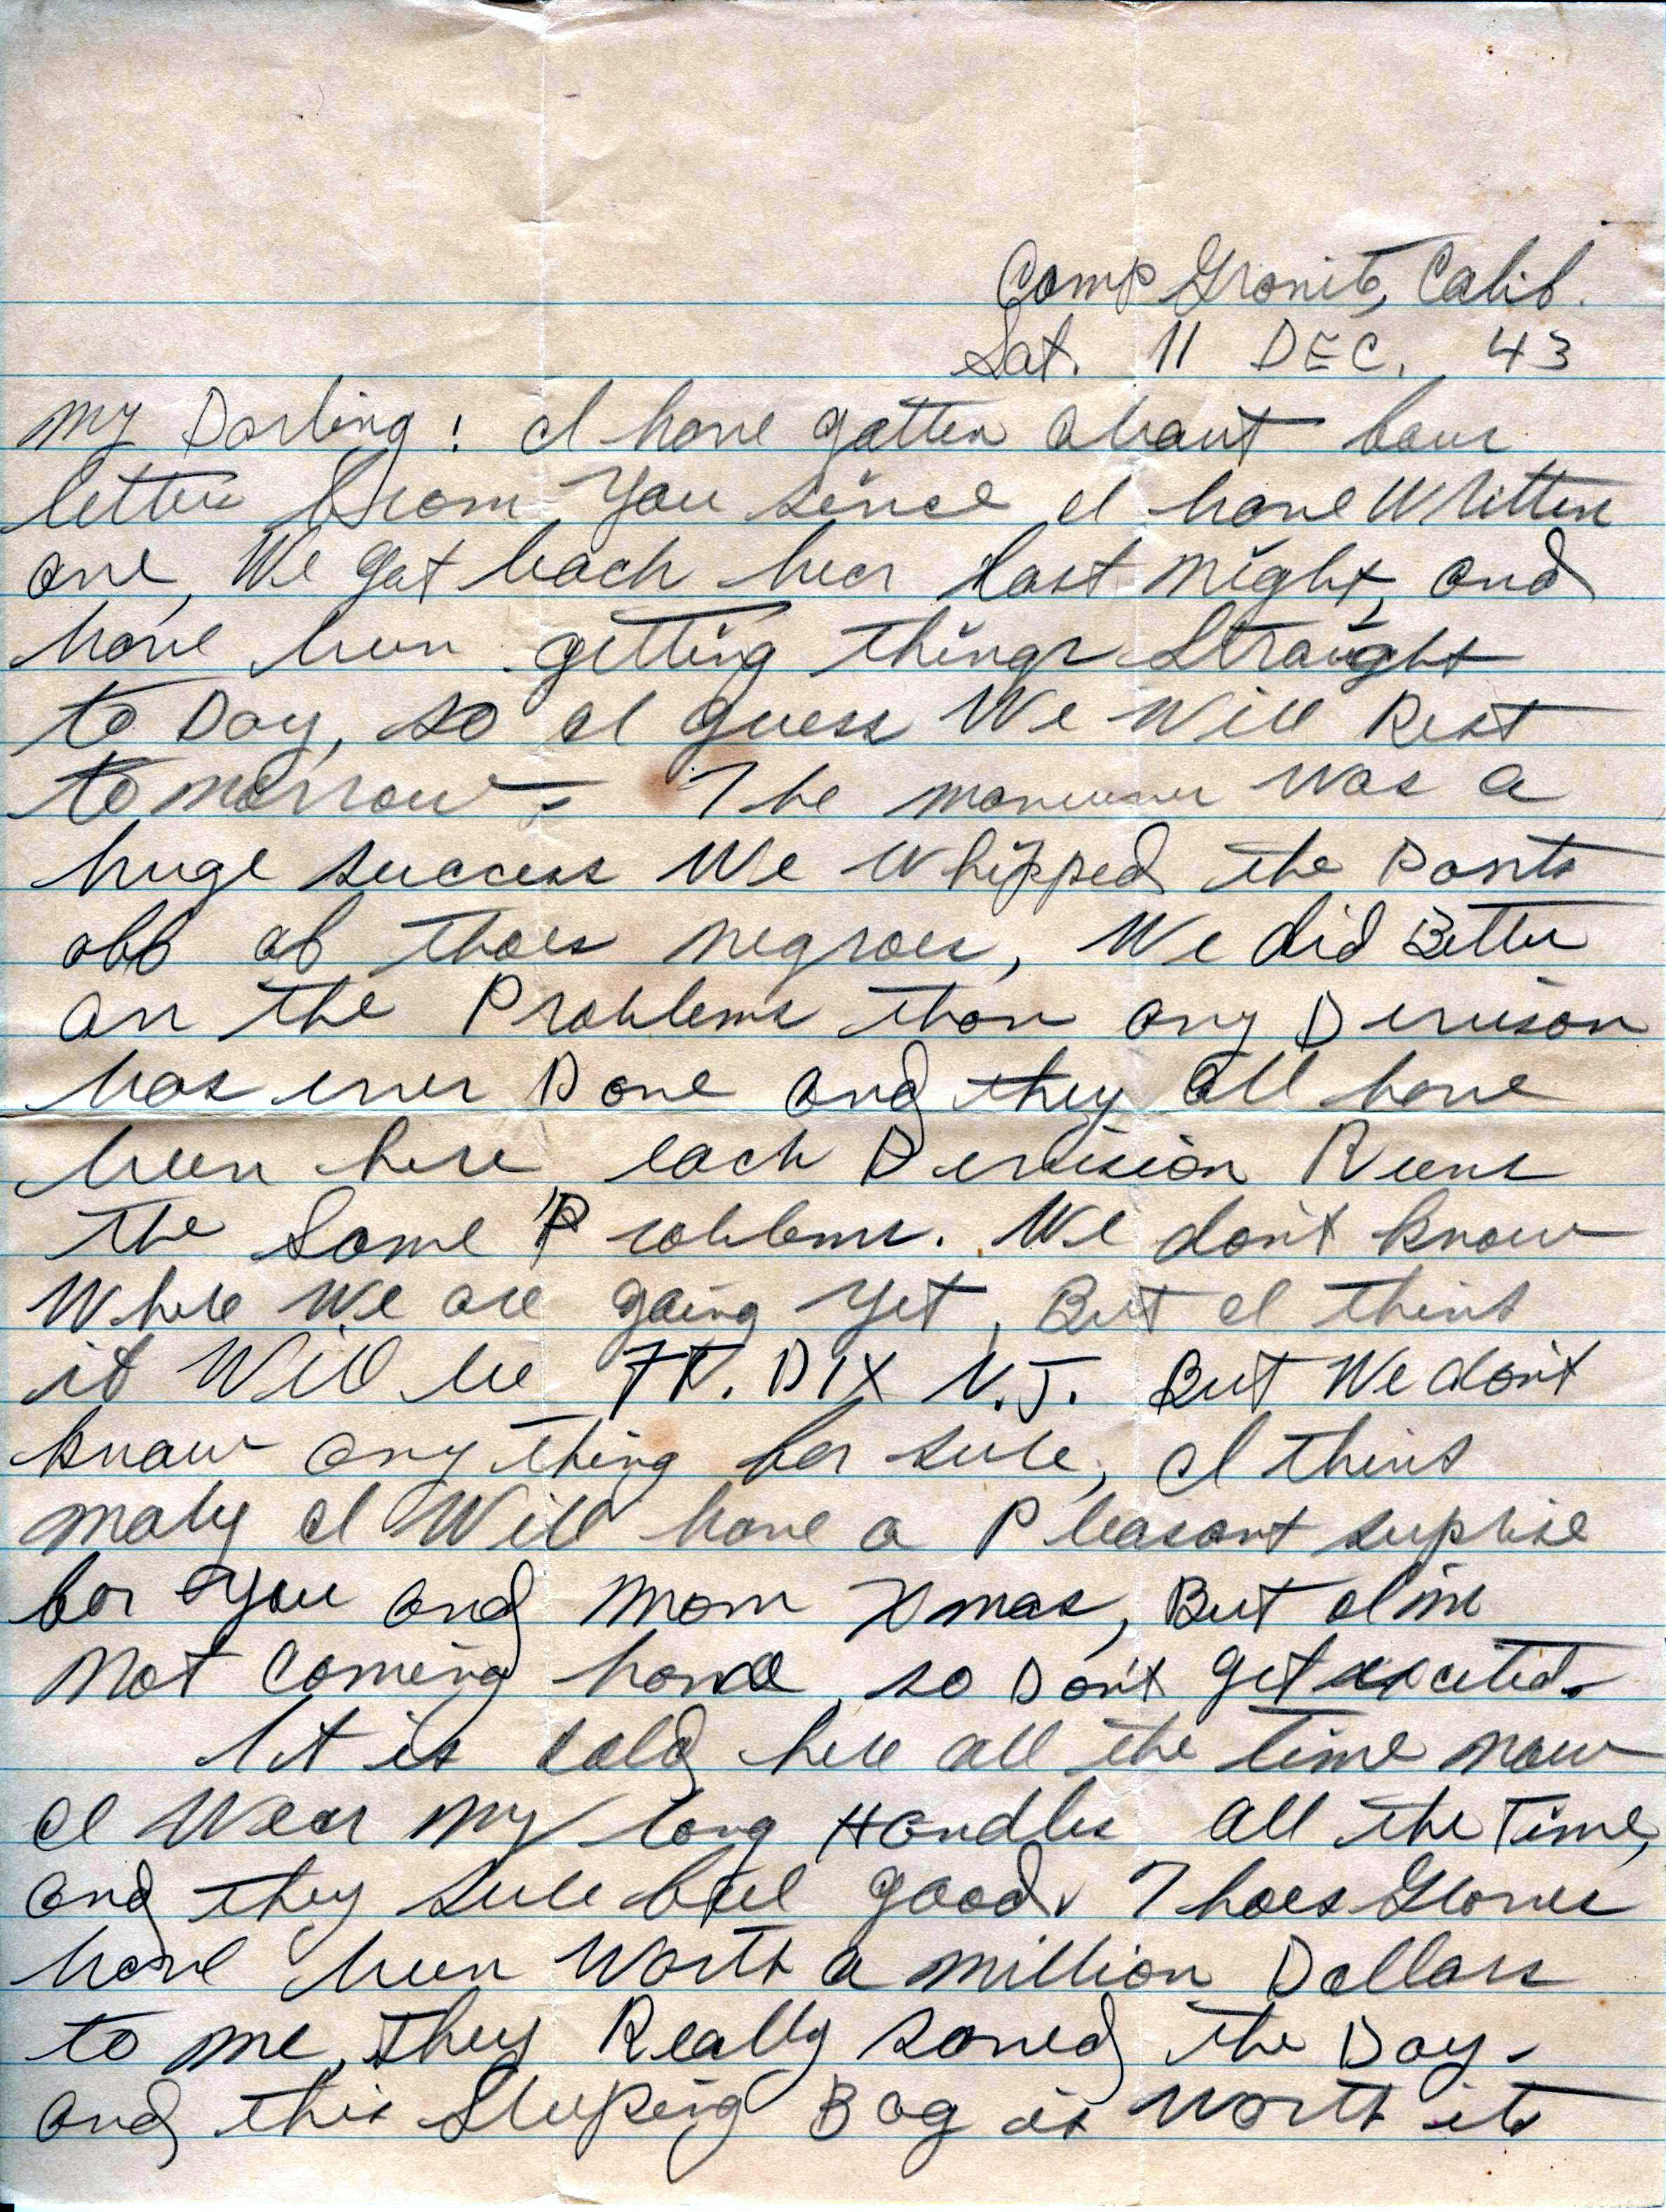 Camp Granite, Calif.
Sat. 11 DEC. 43
My Darling! I have gotten about four
letters from you since I have Written
one, We got back hear last night, and
have been getting things straight
to Day, so I guess We Will Rest
tomorrow. The maneuver was a
huge success We Whipped the Pants
off of thoes negroes, We did Better
on the Problems than any Division
has ever Done and they all have
been here each Division Runs
the Same Problems. We don't know
Where We are going yet, But I think
it Will be FT. DIX N.J. But We don't
know any thing for sure, I think
maby I Will have a Pleasant suprise
for you and Mom Xmas, But I'm
Not Coming home, so Don't get excited.
It is cold here all the time now
I Wear My long Handles all the Time,
and they sure feel good. Thoes Gloves
have been Worth a million Dollars
to me, they Really saved the Day.
and this Sleeping Bag is Worth its